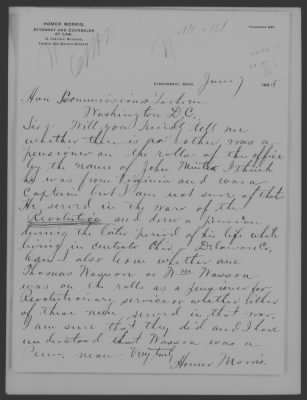 HOMER MORRIS,
ATTORNEY AND COUNSELOR
AT LAW.
CINCINNATI, OHIO, June 7
Hon Commissioner
Washington D.C.
Sir Will you kindly tell me
whether there is or either was a
pensioner on the rolls of the office
by the name of John I think
he was from Virginia and was a
Captain but I am not sure of that
He served in the war of the
Revolution and drew a pension
during the later period of his life while
living in central Ohio Delaware Co.
Can I also learn whether one
Thomas Wasson or Wm Wasson
was on the rolls as a pensioner for
Revolutionary service or whether either
of these men served in that war.
I am sure that they did and I have
understood that Wasson was a
Penn. man Very truly
Homer Morris